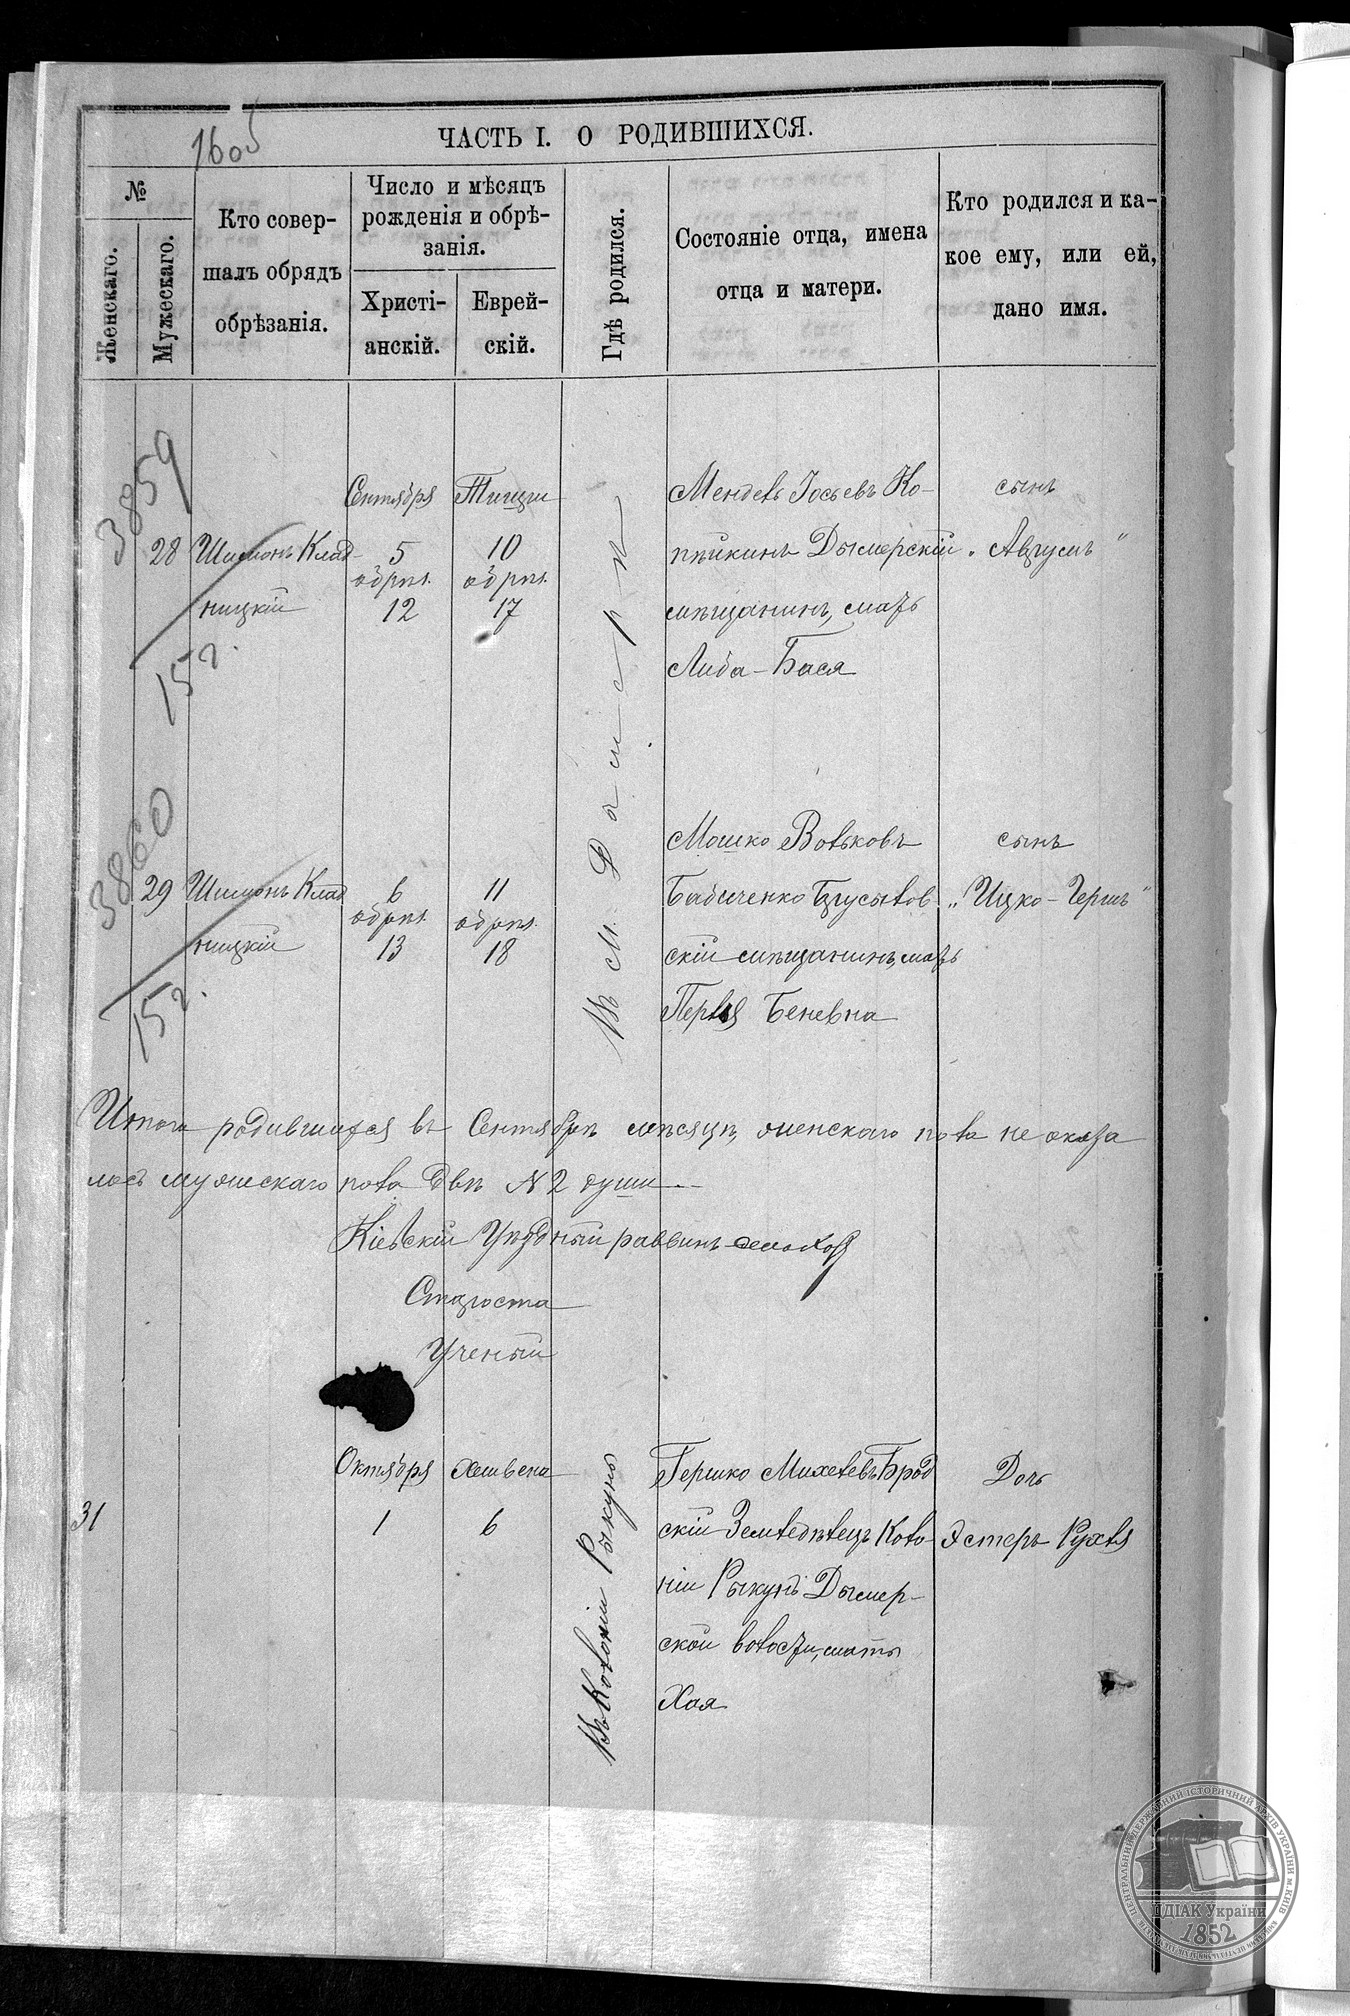 1605
ЧАСТЬ I. О РОДИВШИХСЯ.
№
Женскаго.
Мужескаго.
Кто совер-
шалъ обрядъ
обрѣзанія.
Число и мѣсяцъ
рожденія и обрѣ-
занія.
Христі-
анскій.
Еврей-
скій.
Гдѣ родился.
Состояніе отца, имена
отца и матери.
Кто родился и ка-
кое ему, или ей,
дано имя.
3859
28
Шимонъ Клад-
ницкій
152.
Сентября
5
обрѣз.
12
Тишри
10
обрѣз.
17
Въ М. Дымерѣ
Мендель Іосьевъ Ко-
пѣйкинъ Дымерскій
мѣщанинъ, мать
Либа-Бася
сынъ
„Авѓумъ"
3860
29
Шимонъ Клад
ницкій
152.
6
обрѣз.
13
11
обрѣз.
18
Мошко Вольковъ
Бабиченко Брусилов
скій мѣщанинъ, мать
Перля Беневна
сынъ
„Ицко-Гершъ"
Итого родившихся въ Сентябрѣ мѣсяцѣ, женскаго пола не оказа
лось мужескаго пола двѣ № 2 души
Кіевскій Уѣздный раввинъ
Староста
Ученый
31
Октября
1
Хешвена
6
Въ Колоніи Рыкунь
Гершко Михелевъ Брод
скій Земледѣлецъ Коло-
ніи Рыкунь Дымер-
ской волости, мать
Хая
Дочь
Эстеръ Рухля
ЦЕНТРАЛЬНИЙ ДЕРЖАВНИЙ ІСТОРИЧНИЙ АРХІВ УКРАЇНИ м. КИЇВ
ЦДІАК України
1852